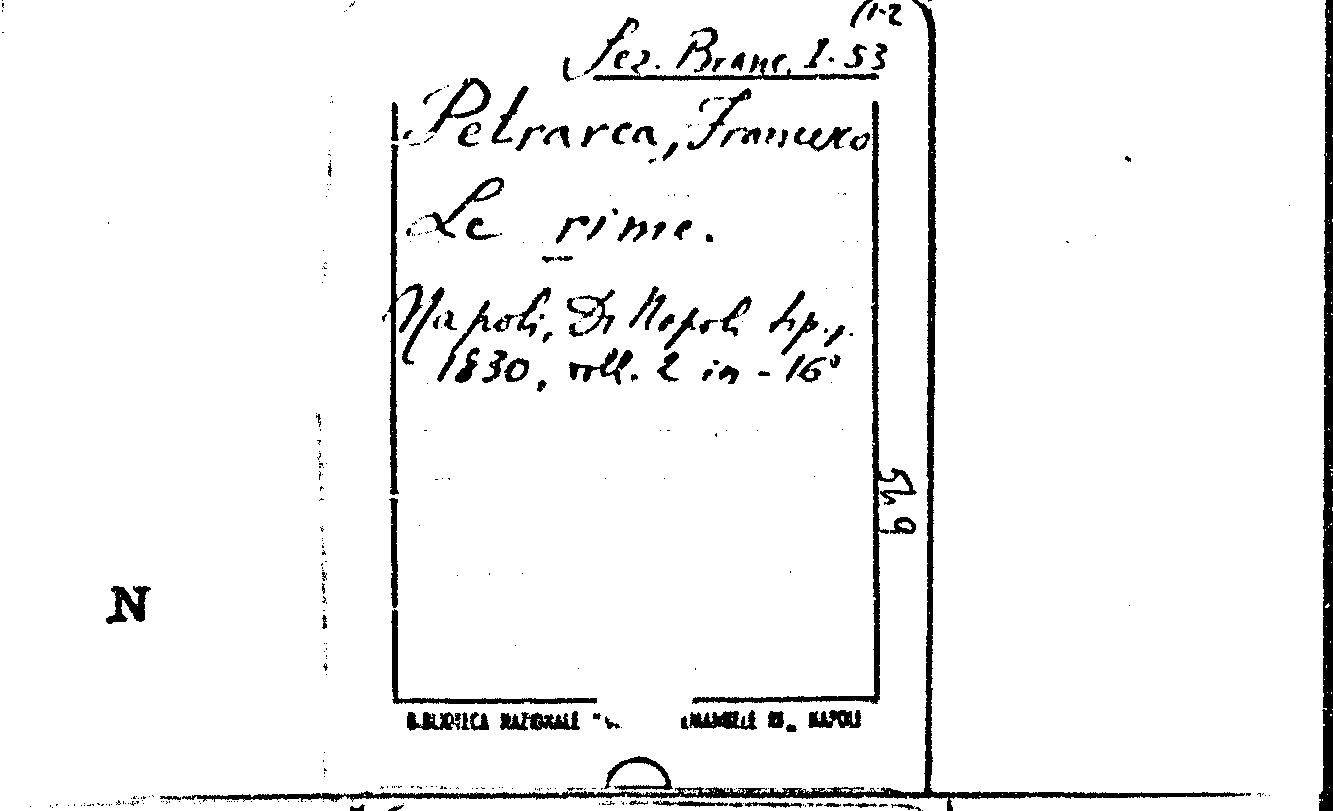 (1-2
Sez. Branc. I. 53
Petrarca, Francesco
Le rime.
Napoli, Di Napoli tip.,
1830, voll. 2 in-16°
N
BIBLIOTECA NAZIONALE EMANUELE III" NAPOLI